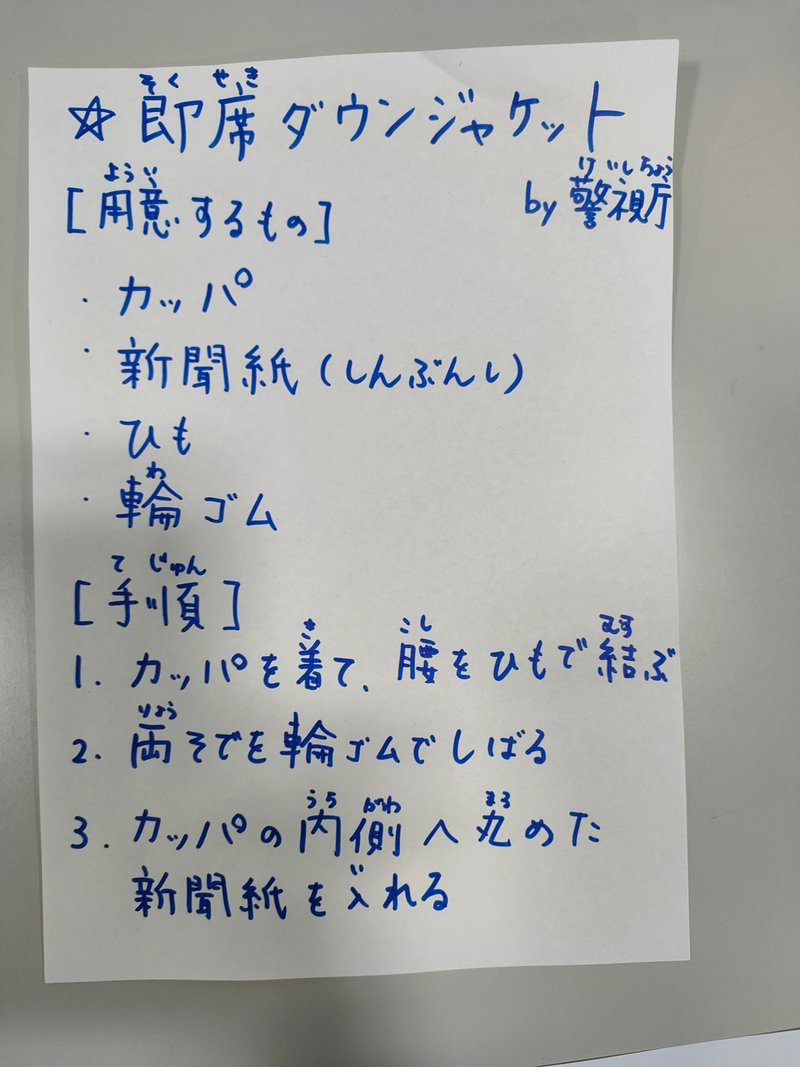 そく せき
☆即席ダウンジャケット
けいしちょう
by 警視庁
ようい
[用意するもの]
・カッパ
・新聞紙(しんぶんし)
・ひも
わ
・輪ゴム
て じゅん
[手順]
き こし むす
1. カッパを着て、腰をひもで結ぶ
りょう
2. 両そでを輪ゴムでしばる
うち がわ まる
3. カッパの内側へ丸めた
い
新聞紙を入れる